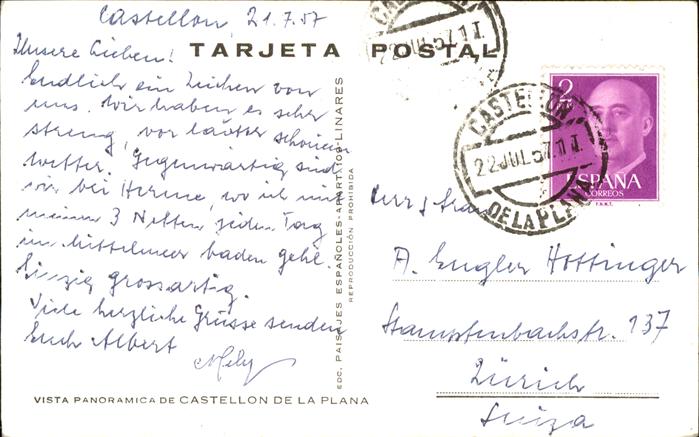 Castellon, 21.7.57
Unsere Lieben!
TARJETA POSTAL
Endlich ein Zeichen von
uns. Wir haben es sehr
streng, vor lauter schönem
Wetter. Gegenwärtig sind
wir bei Herme, wo ich mit
meinen 3 Neffen jeden Tag
im Mittelmeer baden gehe.
Einzig grossartig.
Viele herzliche Grüsse senden
Euch Albert
Mely
VISTA PANORAMICA DE CASTELLON DE LA PLANA
EDC. PAISAJES ESPAÑOLES-APARTA 105-LINARES
REPRODUCCIÓN PROHIBIDA
22 JUL 57.1T.
CASTELLON
22 JUL 57.1T.
DE LA PLANA
2
ESPAÑA
CORREOS
F.N.M.T.
Herr & Frau
A. Engler Hottinger
Stampfenbachstr. 137
Zürich
Suiza